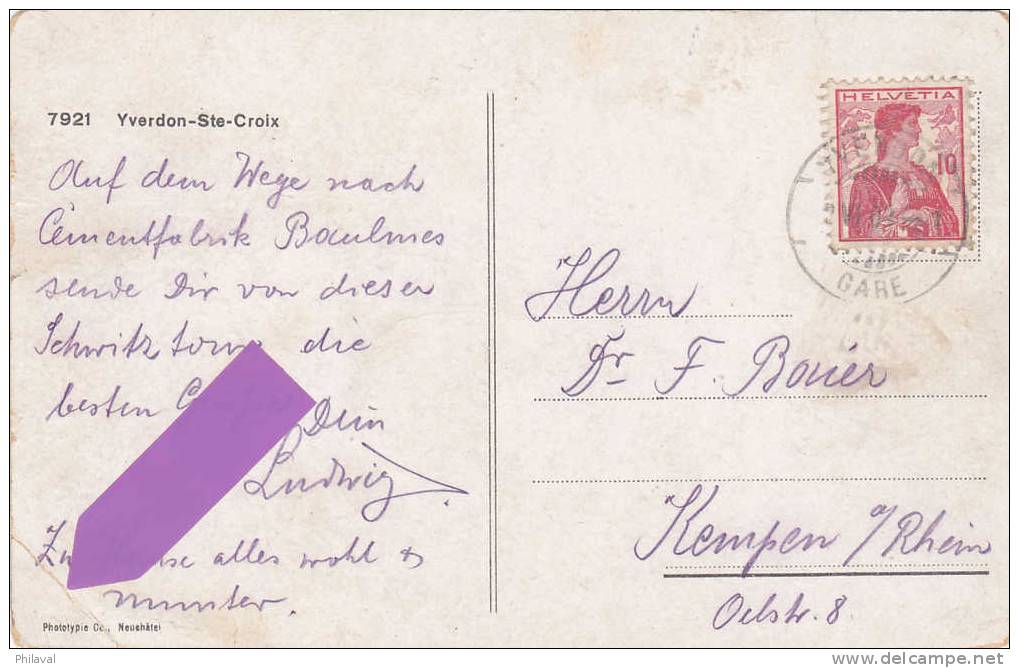 7921 Yverdon-Ste-Croix
Auf dem Wege nach
Cementfabrik Baulmes
sende Dir von dieser
Schwitztour die
besten
Dein
Ludwig
alles wohl &
munter.
Phototypie Co., Neuchâtel
HELVETIA
10
GARE
Herrn
Dr F. Bauer
Kempen a/Rhein
Oelstr. 8
Philaval
www.delcampe.net